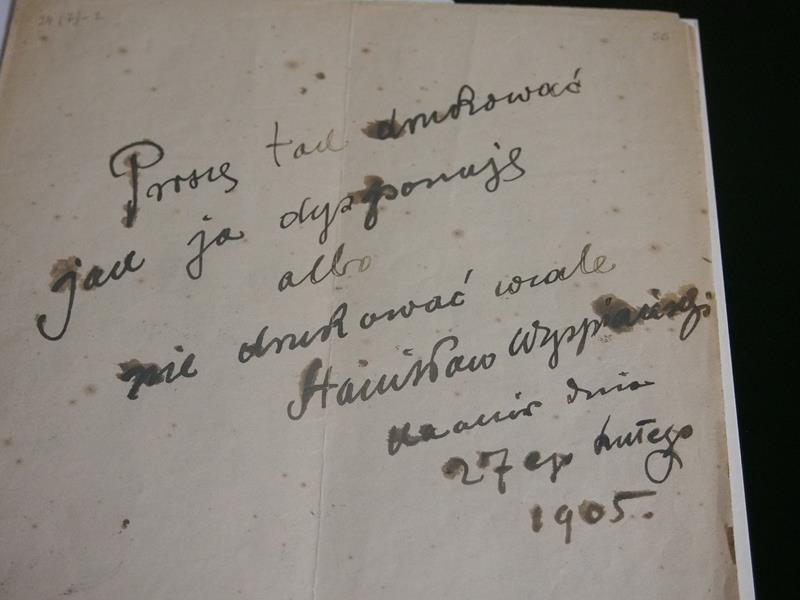 Proszę tak drukować
jak ja dysponuję
albo
nie drukować wcale
Stanisław Wyspiański
Kraków dnia
27 ego lutego
1905.